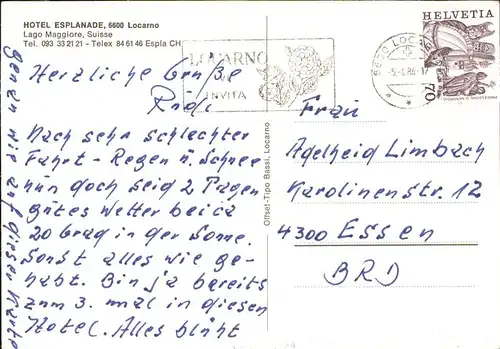 HOTEL ESPLANADE, 6600 Locarno
Lago Maggiore, Suisse
Tel. 093 33 21 21 - Telex 84 61 46 Espla CH
Herzliche Grüße
Nach sehr schlechter
Fahrt - Regen u. Schnee
nun doch seid 2 Tagen
gutes Wetter bei ca
20 Grad in der Sonne.
Sonst alles wie ge-
habt. Bin ja bereits
zum 3. mal in diesen
Hotel. Alles blüht
genau wie auf dieser Karte
Offset-Tipo Bassi, Locarno
LOCARNO
INVITA
6600 LOCARNO
HELVETIA
70
Frau
Adelheid Limbach
Karolinenstr. 12
4300 Essen
BRD